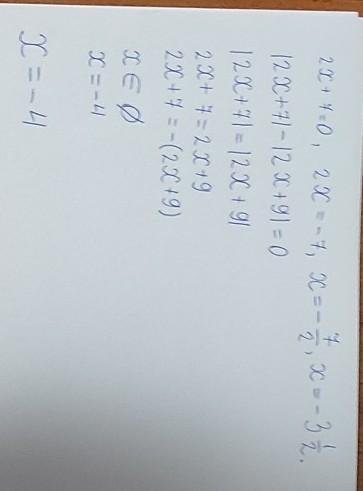 2x+7=0, 2x=-7, x=-7/2, x=-3 1/2.
|2x+7|-|2x+9|=0
|2x+7|=|2x+9|
2x+7=2x+9
2x+7=-(2x+9)
x∈∅
x=-4
x=-4